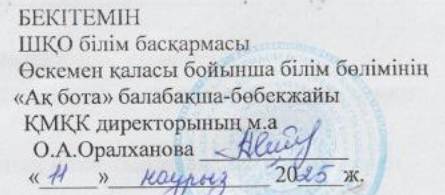 БЕКІТЕМІН
ШҚО білім басқармасы
Өскемен қаласы бойынша білім бөлімінің
«Ақ бота» балабақша-бөбекжайы
ҚМҚК директорының м.а
О.А.Оралханова
« 11 » наурыз 2025 ж.